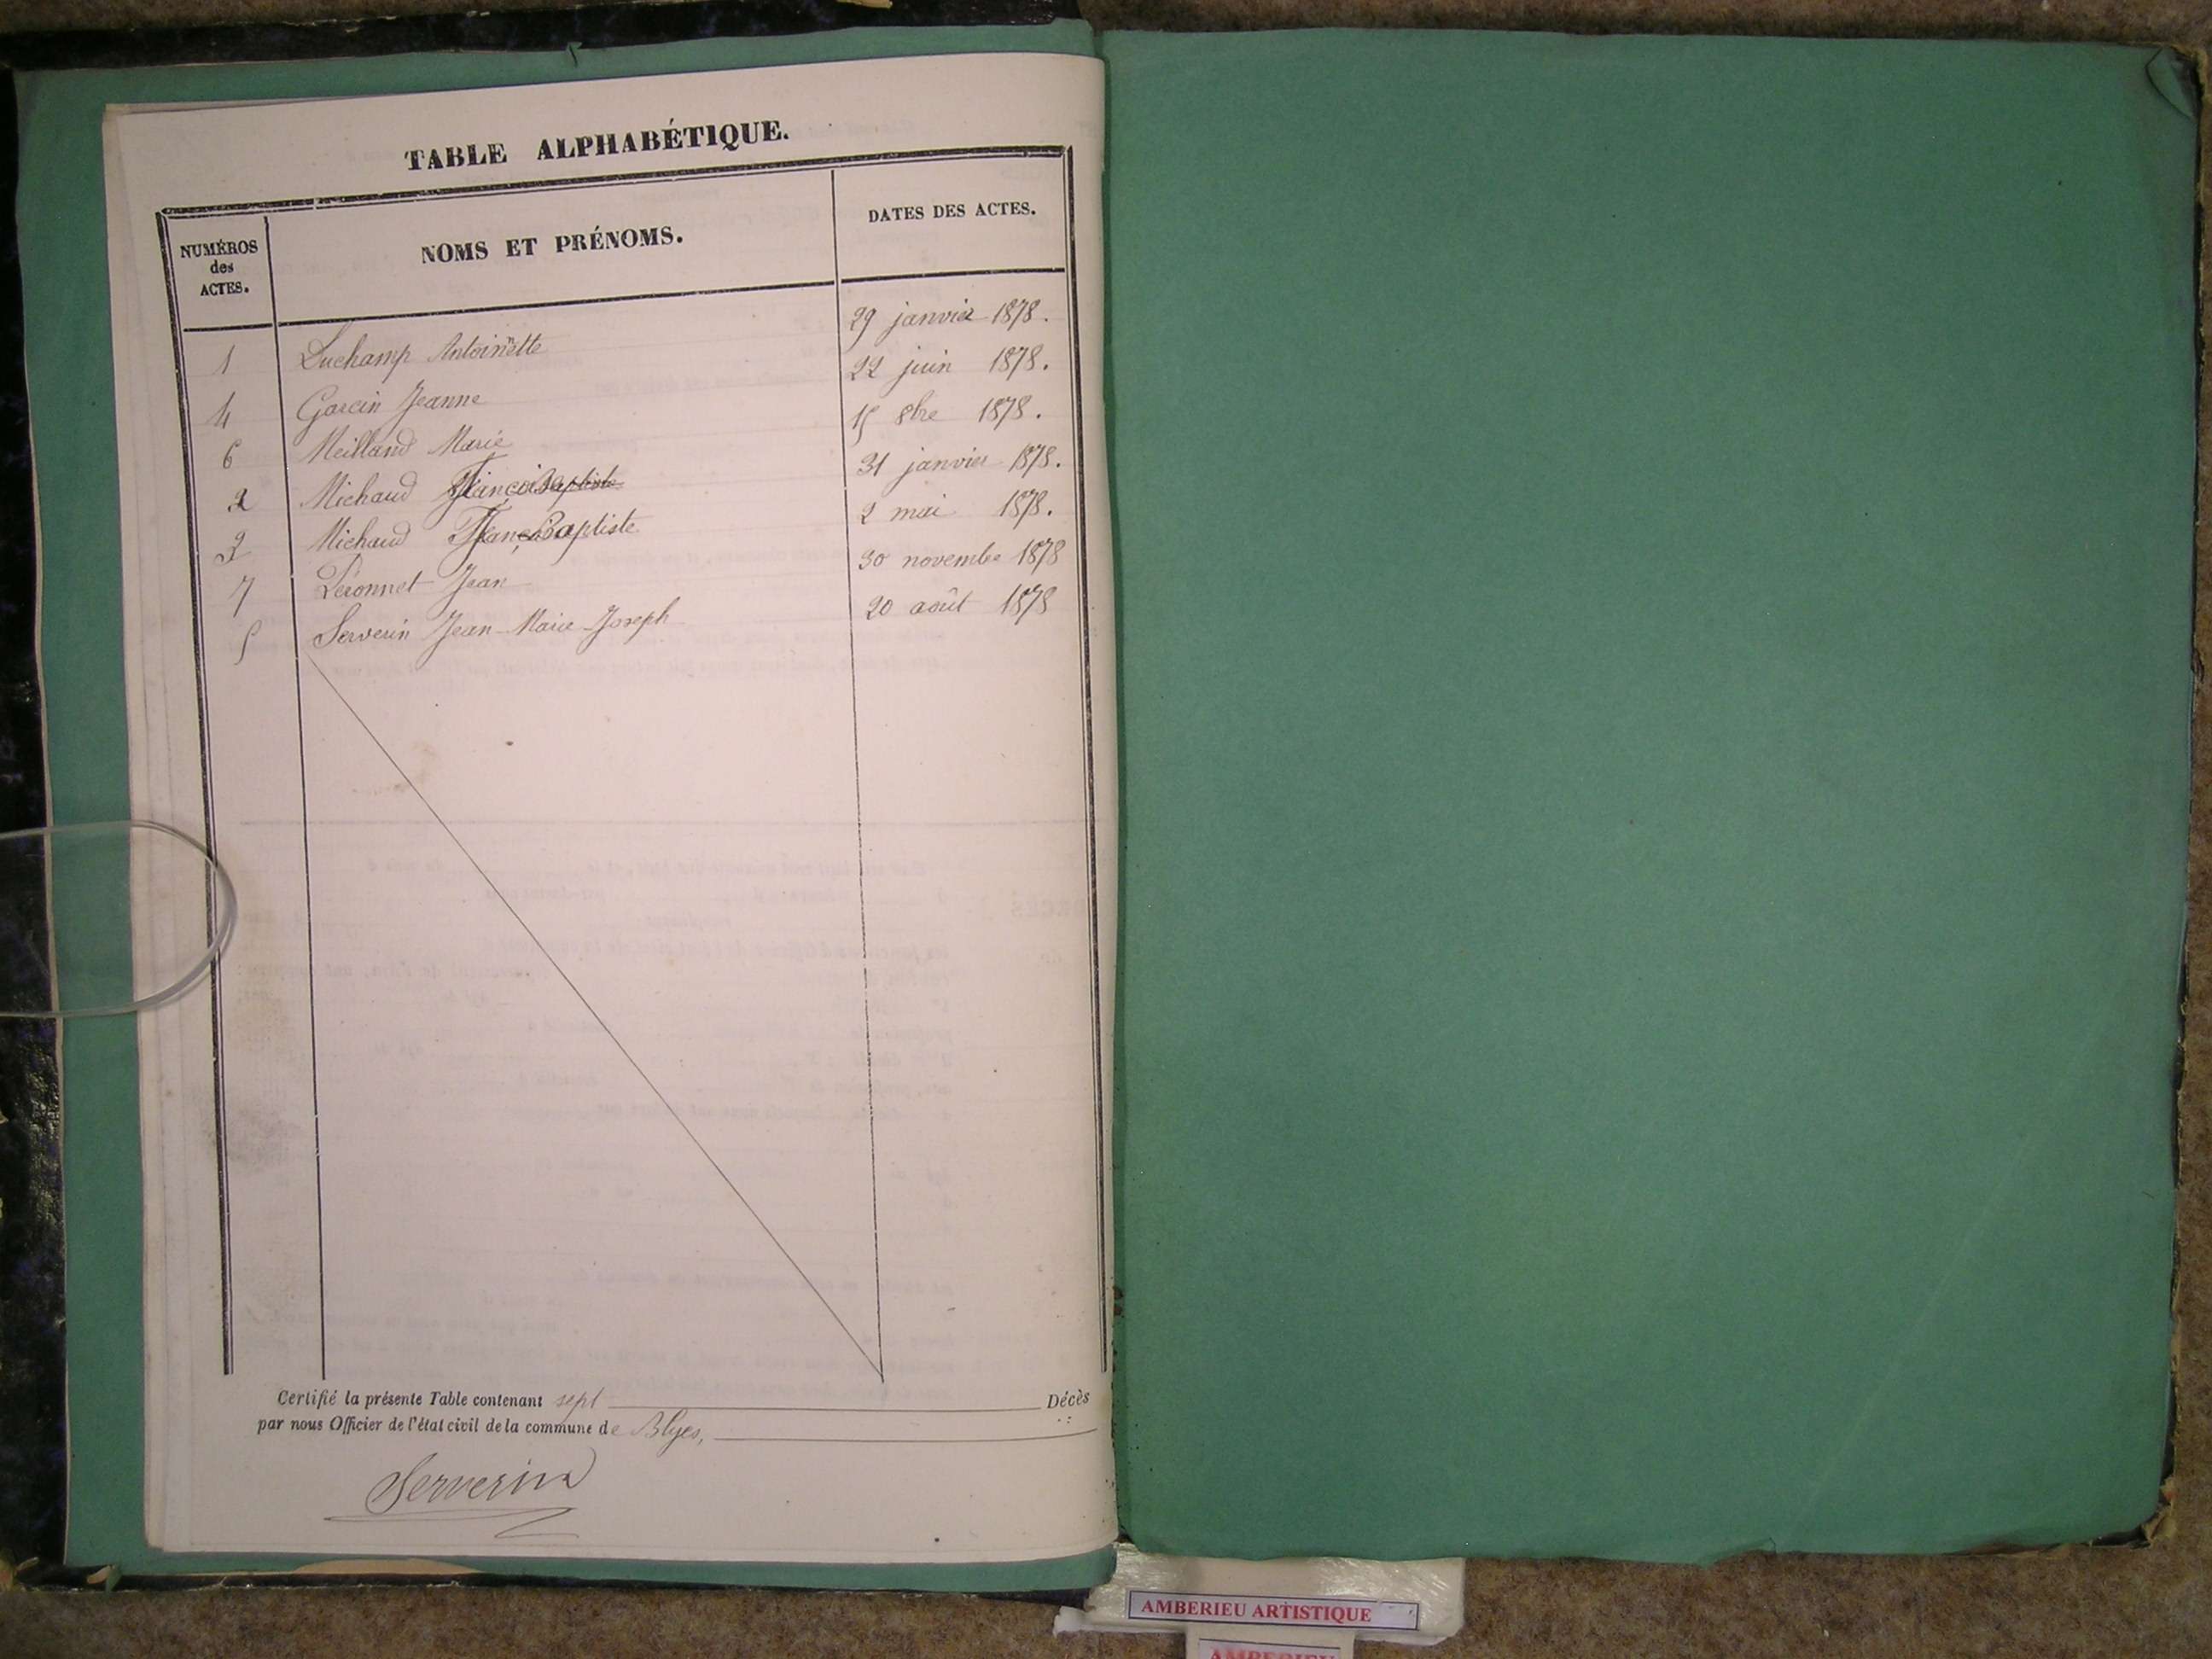 TABLE ALPHABÉTIQUE.
NUMÉROS des ACTES. NOMS ET PRÉNOMS. DATES DES ACTES.
1 Luchamp Antoinette 29 janvier 1878.
4 Garcin Jeanne 22 juin 1878.
6 Meilland Marie 15 8bre 1878.
2 Michaud 31 janvier 1878.
Michaud Baptiste 2 mai 1878.
7 Péronnet Jean 30 novembre 1878
5 Serverin Jean-Marie-Joseph 20 août 1878
Certifié la présente Table contenant sept Décès
par nous Officier de l'état civil de la commune de Blyes,
Serverin
AMBERIEU ARTISTIQUE
AMBERIEU